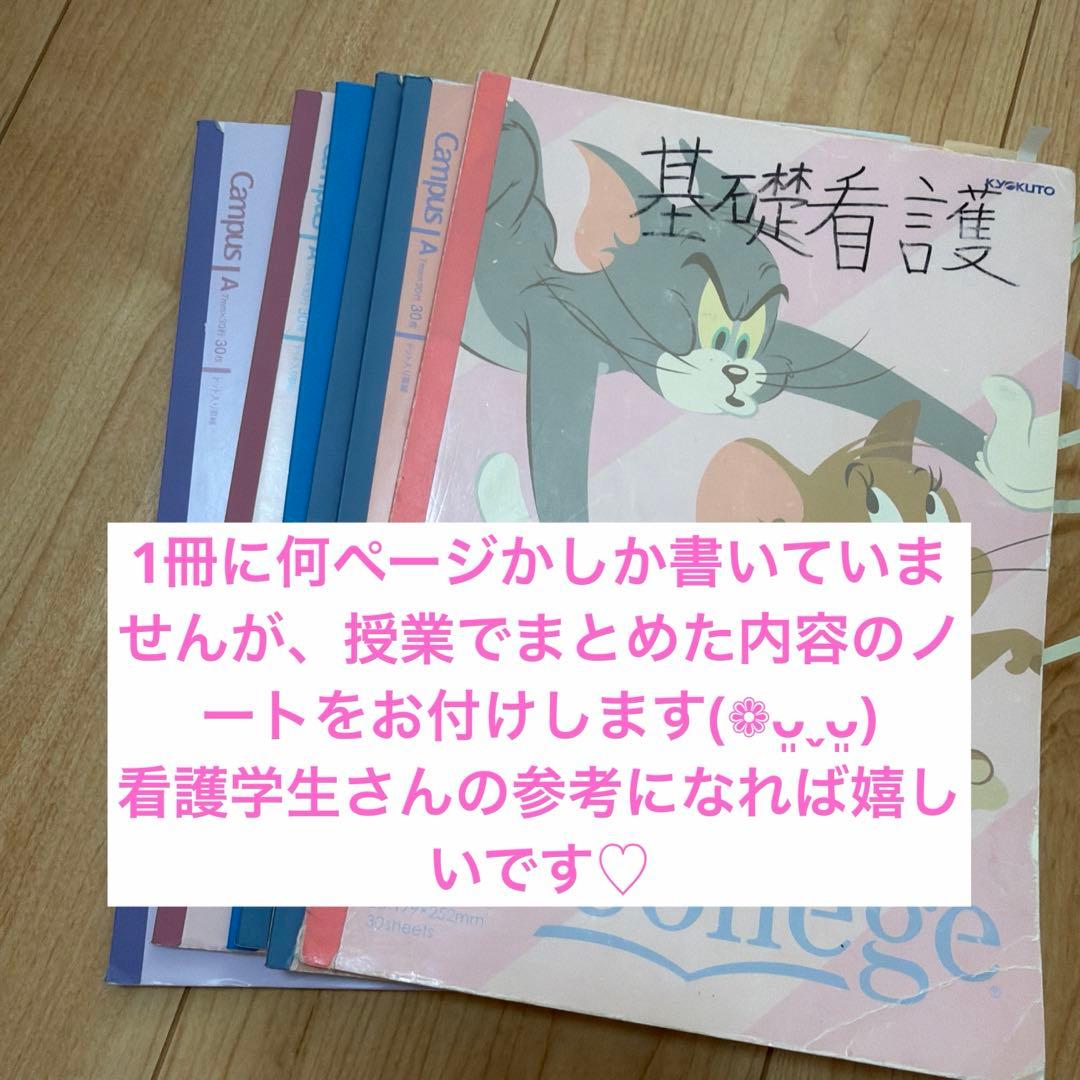 基礎看護
KYOKUTO
Campus
A
7mm×30行 30枚
ドット入り罫線
Campus
A
Campus
A
7mm×30行 30枚
ドット入り罫線
1冊に何ページかしか書いていま
せんが、授業でまとめた内容のノ
ートをお付けします(❁ᴗ͈ˬᴗ͈)
看護学生さんの参考になれば嬉し
いです♡
College
179×252mm
30sheets